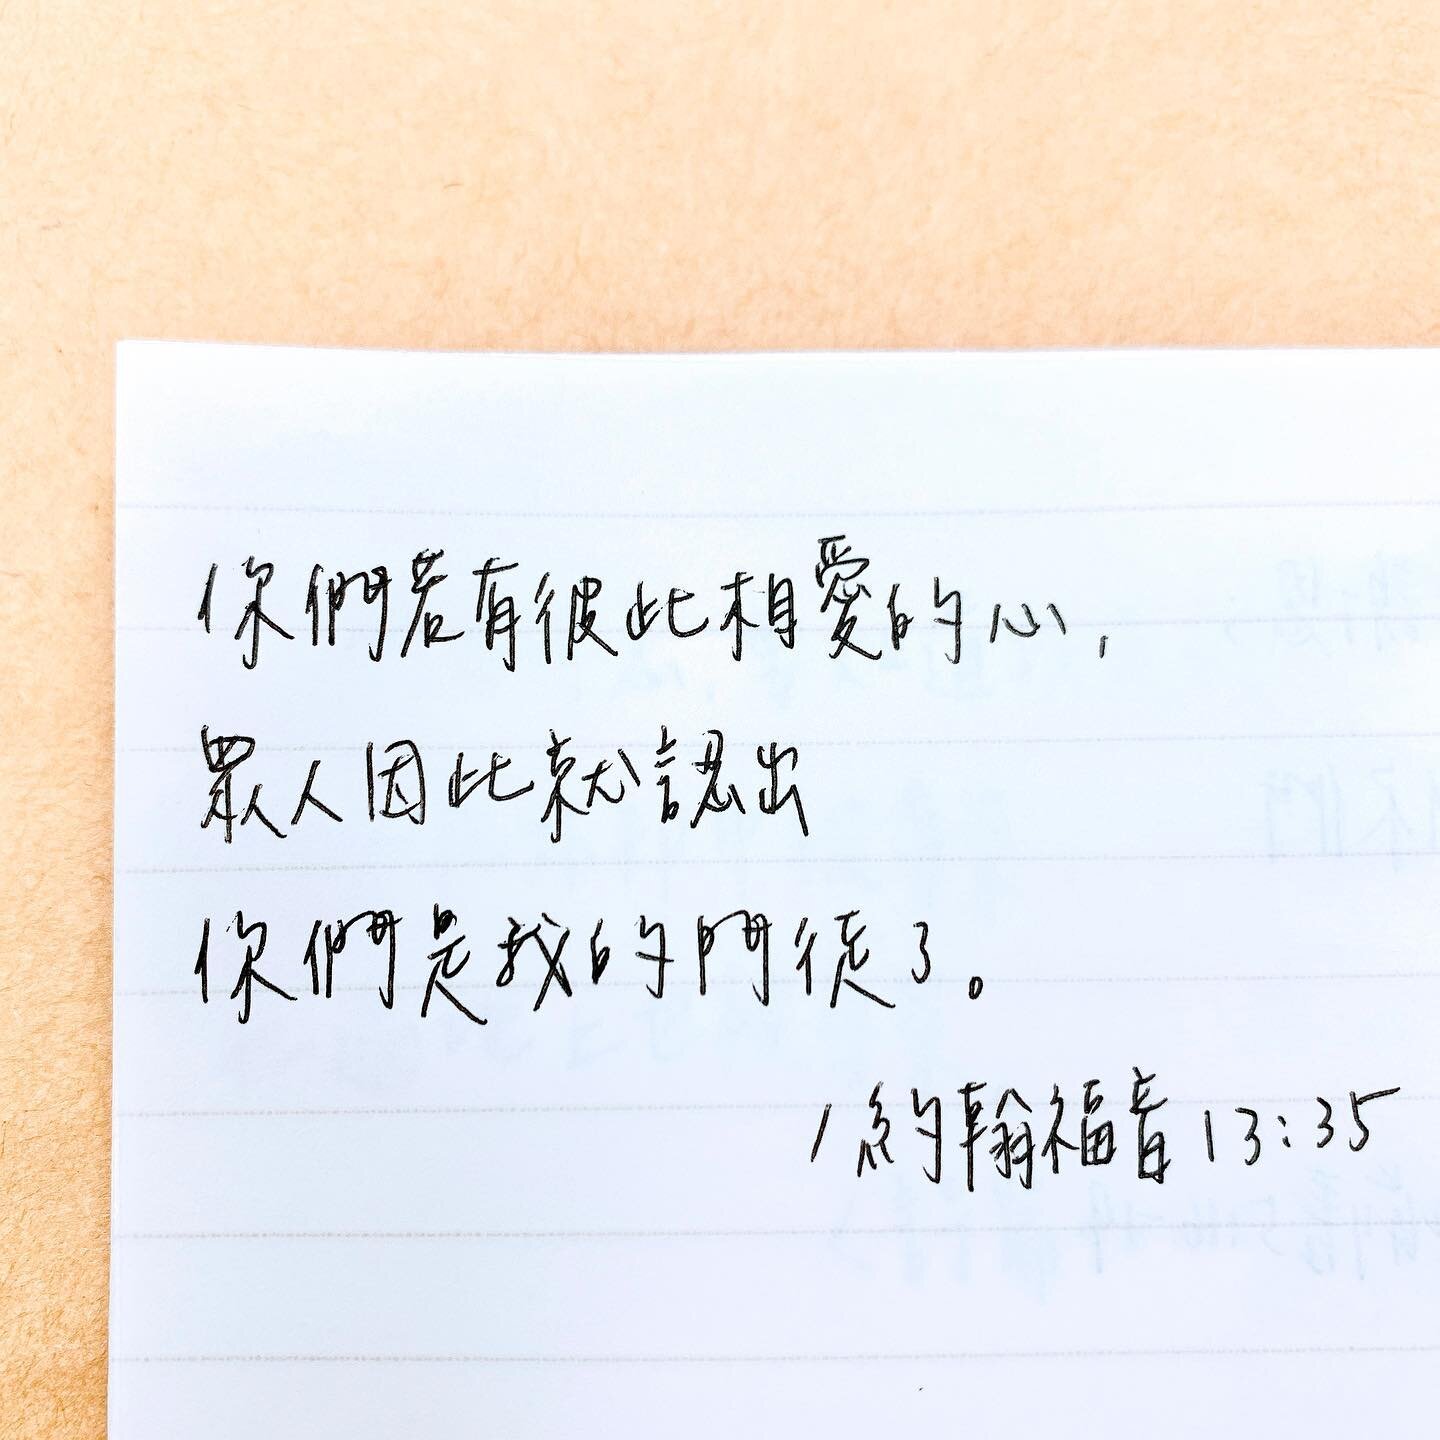 你們若有彼此相愛的心，
眾人因此就認出
你們是我的門徒了。
/約翰福音 13:35